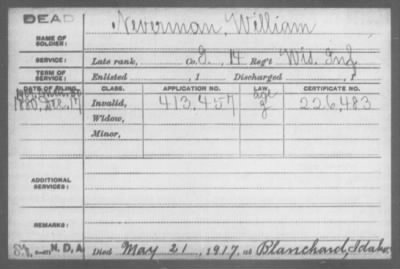 DEAD
NAME OF SOLDIER: Neverman, William
SERVICE: Late rank, Co. I, 14 Reg't Wis. Inf.
TERM OF SERVICE: Enlisted , 1 Discharged , 1
DATE OF FILING. CLASS. APPLICATION NO. LAW. CERTIFICATE NO.
Invalid, 413,457 226,483
Widow,
Minor,
ADDITIONAL SERVICES:
REMARKS:
N. D. A. Died May 21, 1917, at Blanchard, Idaho